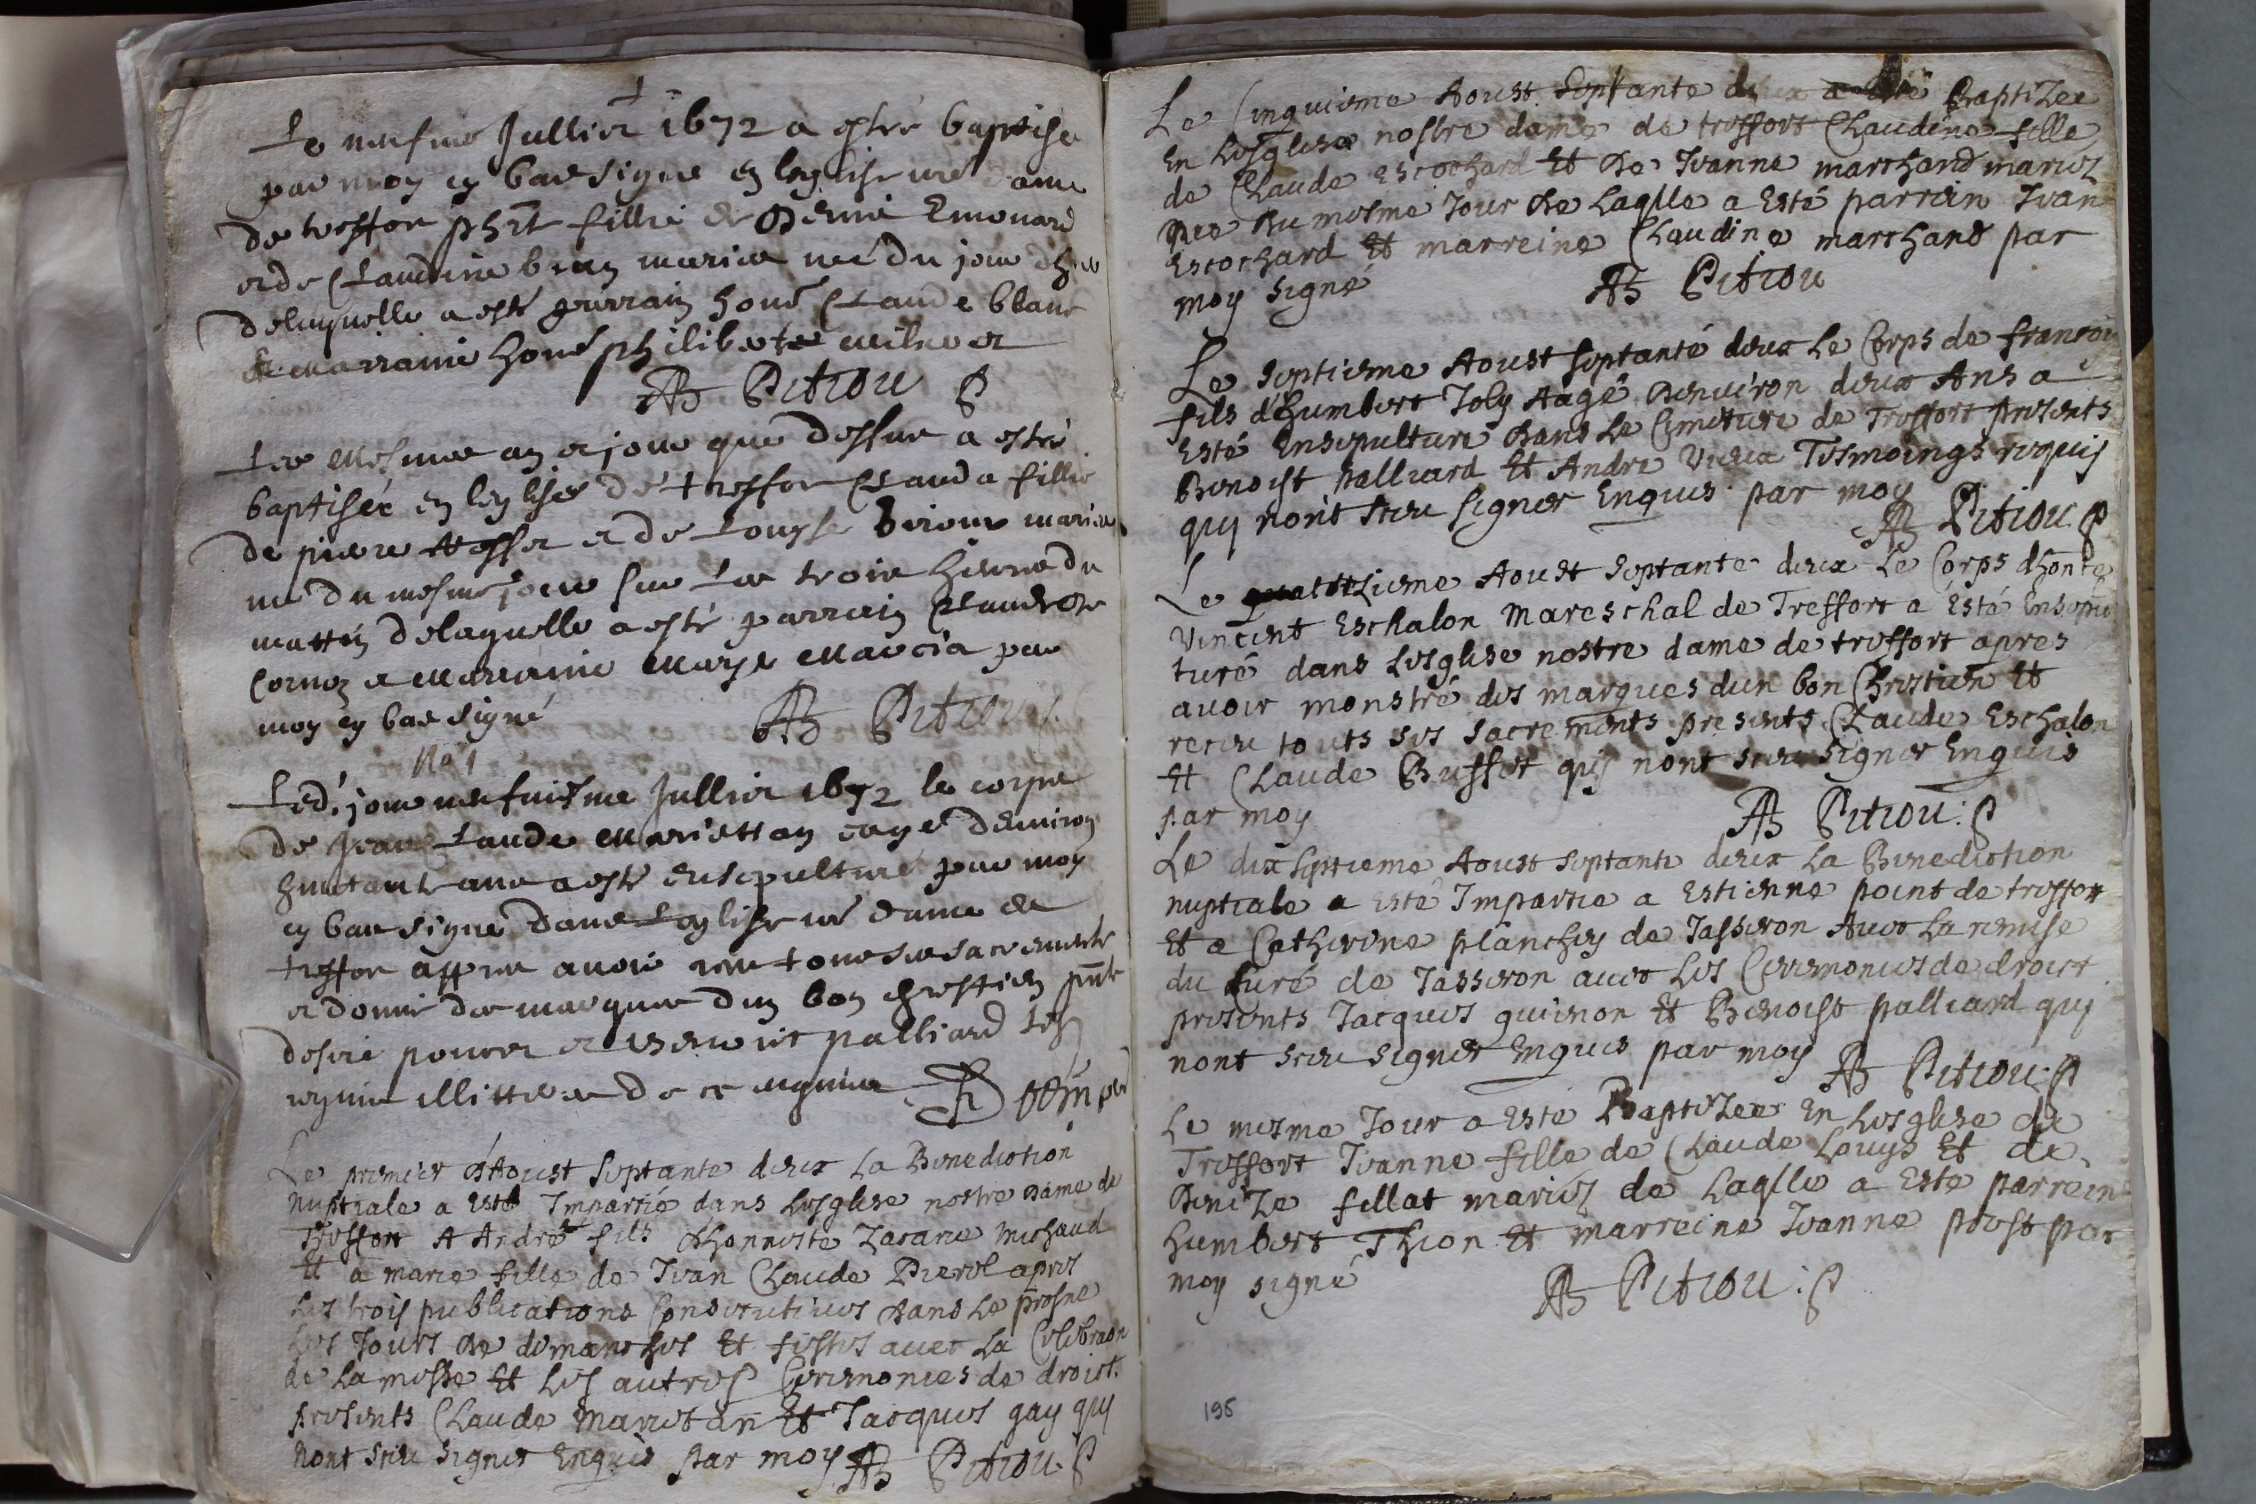 Le neufme Jullier 1672 a estré baptisé
par moy cy bas signe en leglise nre dame
de treffor phte fillie de Denni Emonard
et de Claudine brun maries né du jour dhier
delaquelle a esté parrain hone Claude blanc
& marraine hone philiberte
AB Pitiou
Les mesmes an et jour que dessus a estré
baptiséé en leglise dé treffor Clauda fillie
de piere et de Louyse maries
né du mesme jour sur les trois heures du
mattin délaquelle a esté parrain Claudroz
Cornoz et Marraine Marye par
moy cy bas signé
AB Pitiou
No 1
Led. jour neufuisme Jullier 1672 le corps
De Jean Claude Mariettan eagé denviron
huictante ans a esté ensepulturé par moy
cy bas signe dans leglise nre dame de
treffor appres avoir receu tous ses sacrements
et donné des marques dun bon chrestien pnts
desiré et Benoict palliard
requis illitteres de ce enquis
Le premier dAoust septante deux La Benediction
Nuptiale a Esté Impartié dans Lesglise nostre dame de
Treffort A André fils dhonneste Zacarie Michaud
Et a marie fille de Jean Claude Pierol apres
Les trois publications Consecutives dans Le prosne
Les Jours de dimanches Et festes avec La Celebraon
de La messe Et Les autres Ceremonies de droict.
presents Claude Marietan Et Jacques gay qui
Nont sceu signer Enquis par moy AB Pitiou
Le Cinquieme Aoust Septante deux a esté Baptizee
En Lesglise nostre dame de treffort Claudine fille
de Claude escochard Et de Jeanne marchand mariez
nee du mesme Jour de Laqlle a Esté parrain Jean
Escochard Et marreine Claudine marchand par
moy signé
AB Pitiou
Le septieme Aoust septanté deux Le Corps de francois
fils d'humbert Joly Aagé denviron deux Ans a
Esté Ensepulturé dans Le Cimetiere de Treffort presents
Benoist palliard Et André Vieux Tesmoings requis
qui nont sceu signer Enquis par moy
AB Pitiou
Le quattorzieme Aoust septante deux Le Corps dhonte
Vincent Eschalon Mareschal de Treffort a Esté Ensepul
turé dans Lesglise nostre dame de treffort apres
avoir monstré des marques dun bon Chrestien Et
receu touts ses sacrements presents Claude Eschalon
Et Claude Buffet qui nont sceu signer Enquis
par moy
AB Pitiou
Le dix septieme Aoust septante deux La Benediction
nuptiale a esté Impartie a Estienne point de treffort
Et a Catherine planchy de Jasseron Avec La remise
du Curé de Jasseron avec Les Ceremonies de droict
presents Jacques guienon Et Benoist palliard qui
nont sceu signer Enquis par moy
AB Pitiou
Le mesme Jour a Esté Baptizee En Lesglise de
Treffort Jeanne fille de Claude Louys Et de
Denize fillat mariez de Laqlle a Esté parrein
humbert Thion Et marreine Jeanne prost par
moy signé
AB Pitiou
195